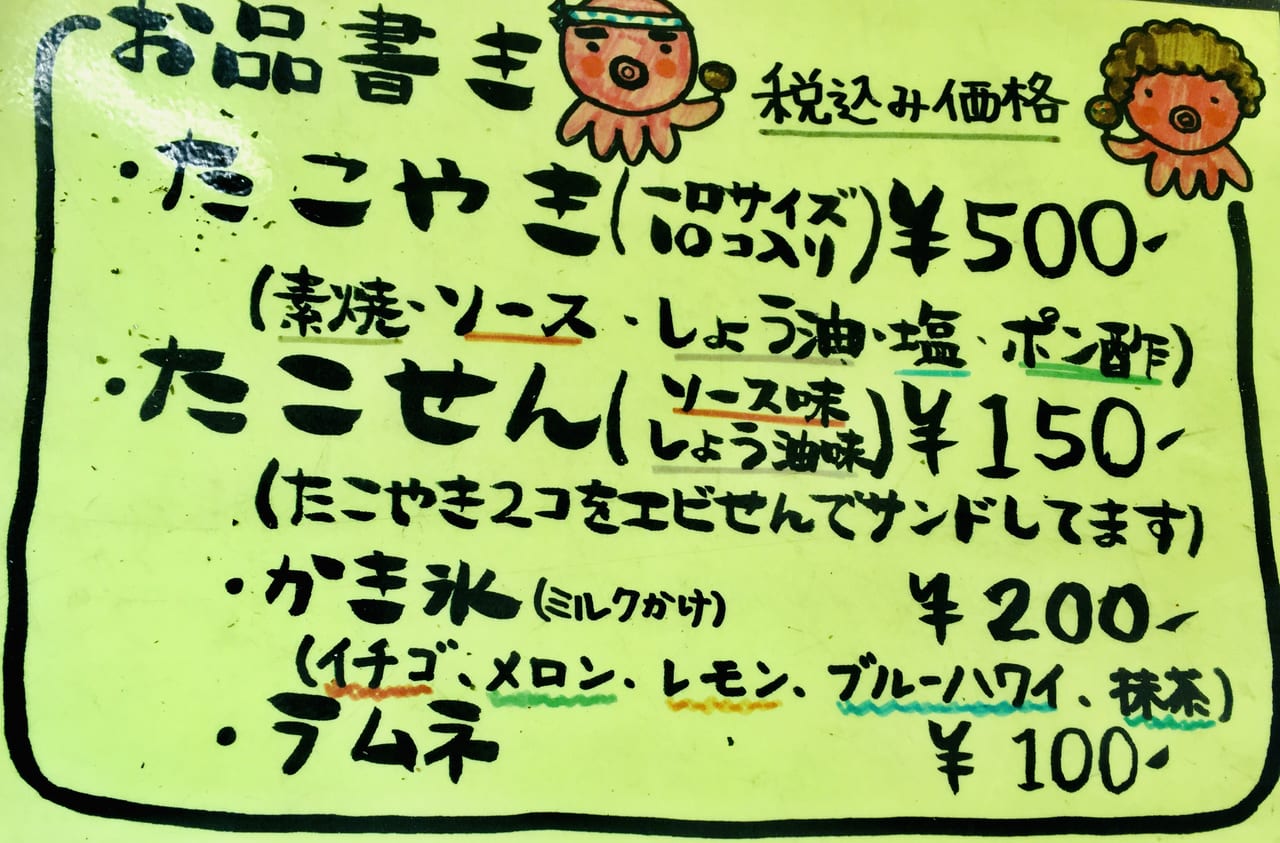 お品書き
税込み価格
・たこやき(一口サイズ 10コ入り)¥500-
(素焼・ソース・しょう油・塩・ポン酢)
・たこせん(ソース味 しょう油味)¥150-
(たこやき2コをエビせんでサンドしてます)
・かき氷(ミルクかけ) ¥200-
(イチゴ、メロン、レモン、ブルーハワイ、抹茶)
・ラムネ ¥100-